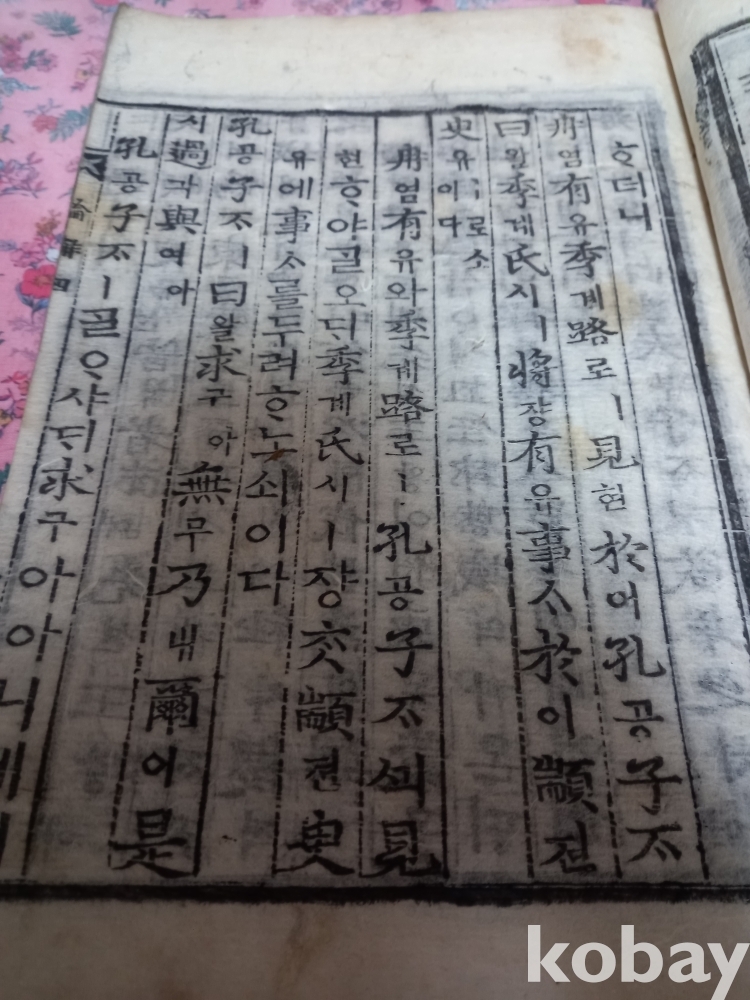 ᄒᆞ더니
冉염有유季계路로ㅣ見현於어孔공子ᄌᆞ
曰왈季계氏시ㅣ將쟝有유事ᄉᆞ於어顓젼
臾유ㅣ로소이다
冉염有유와季계路로ㅣ孔공子ᄌᆞᄭᅴ見
현ᄒᆞ야ᄀᆞᆯ오ᄃᆡ季계氏시ㅣ쟝ᄎᆞᆺ顓젼臾
유에事ᄉᆞ를두려ᄒᆞ노쇠이다
孔공子ᄌᆞㅣ曰왈求구아無무乃내爾이是
시過과與여아
孔공子ᄌᆞㅣᄀᆞᆯᄋᆞ샤ᄃᆡ求구아아니네
論解四
kobay